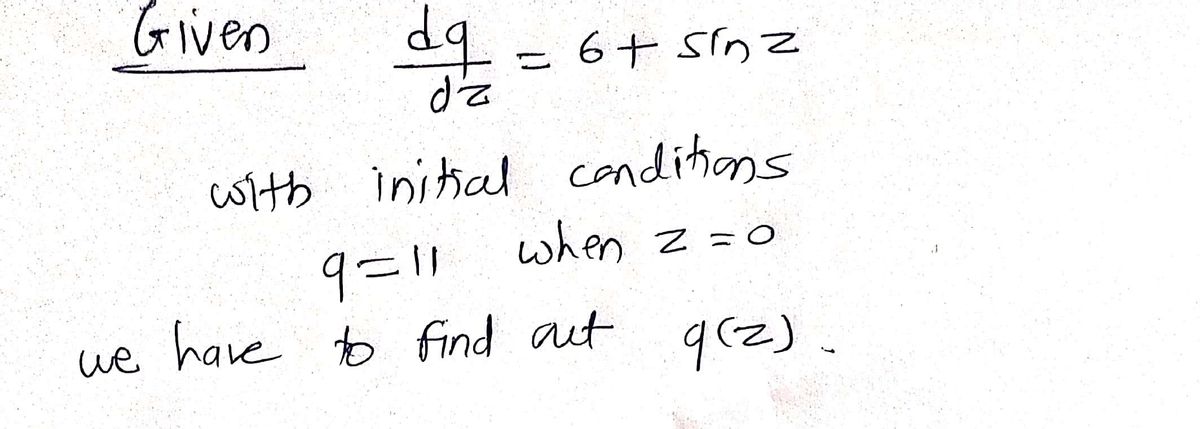 Given dq/dz = 6 + sin z
with initial conditions
q = 11 when z = 0
we have to find out q(z).